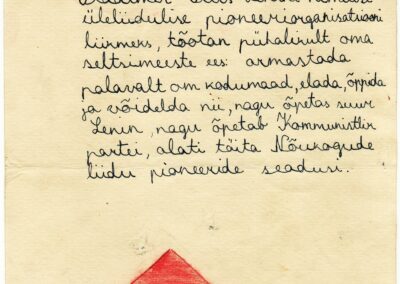 üleliidulise pioneeriorganisatsiooni
liikmeks, tõotan pühalikult oma
seltsimeeste ees: armastada
palavalt om kodumaad, elada, õppida
ja võidelda nii, nagu õpetas suur
Lenin, nagu õpetab Kommunistlik
partei, alati täita Nõukogude
liidu pioneeride seadusi.